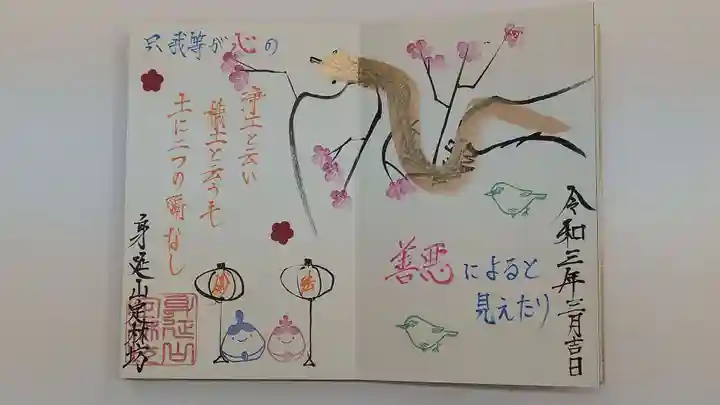 令和三年三月吉日
浄土と云い
穢土と云うも
土に二つの隔なし
只我等が心の
善悪によると
見えたり
妙
法
身延山定林坊